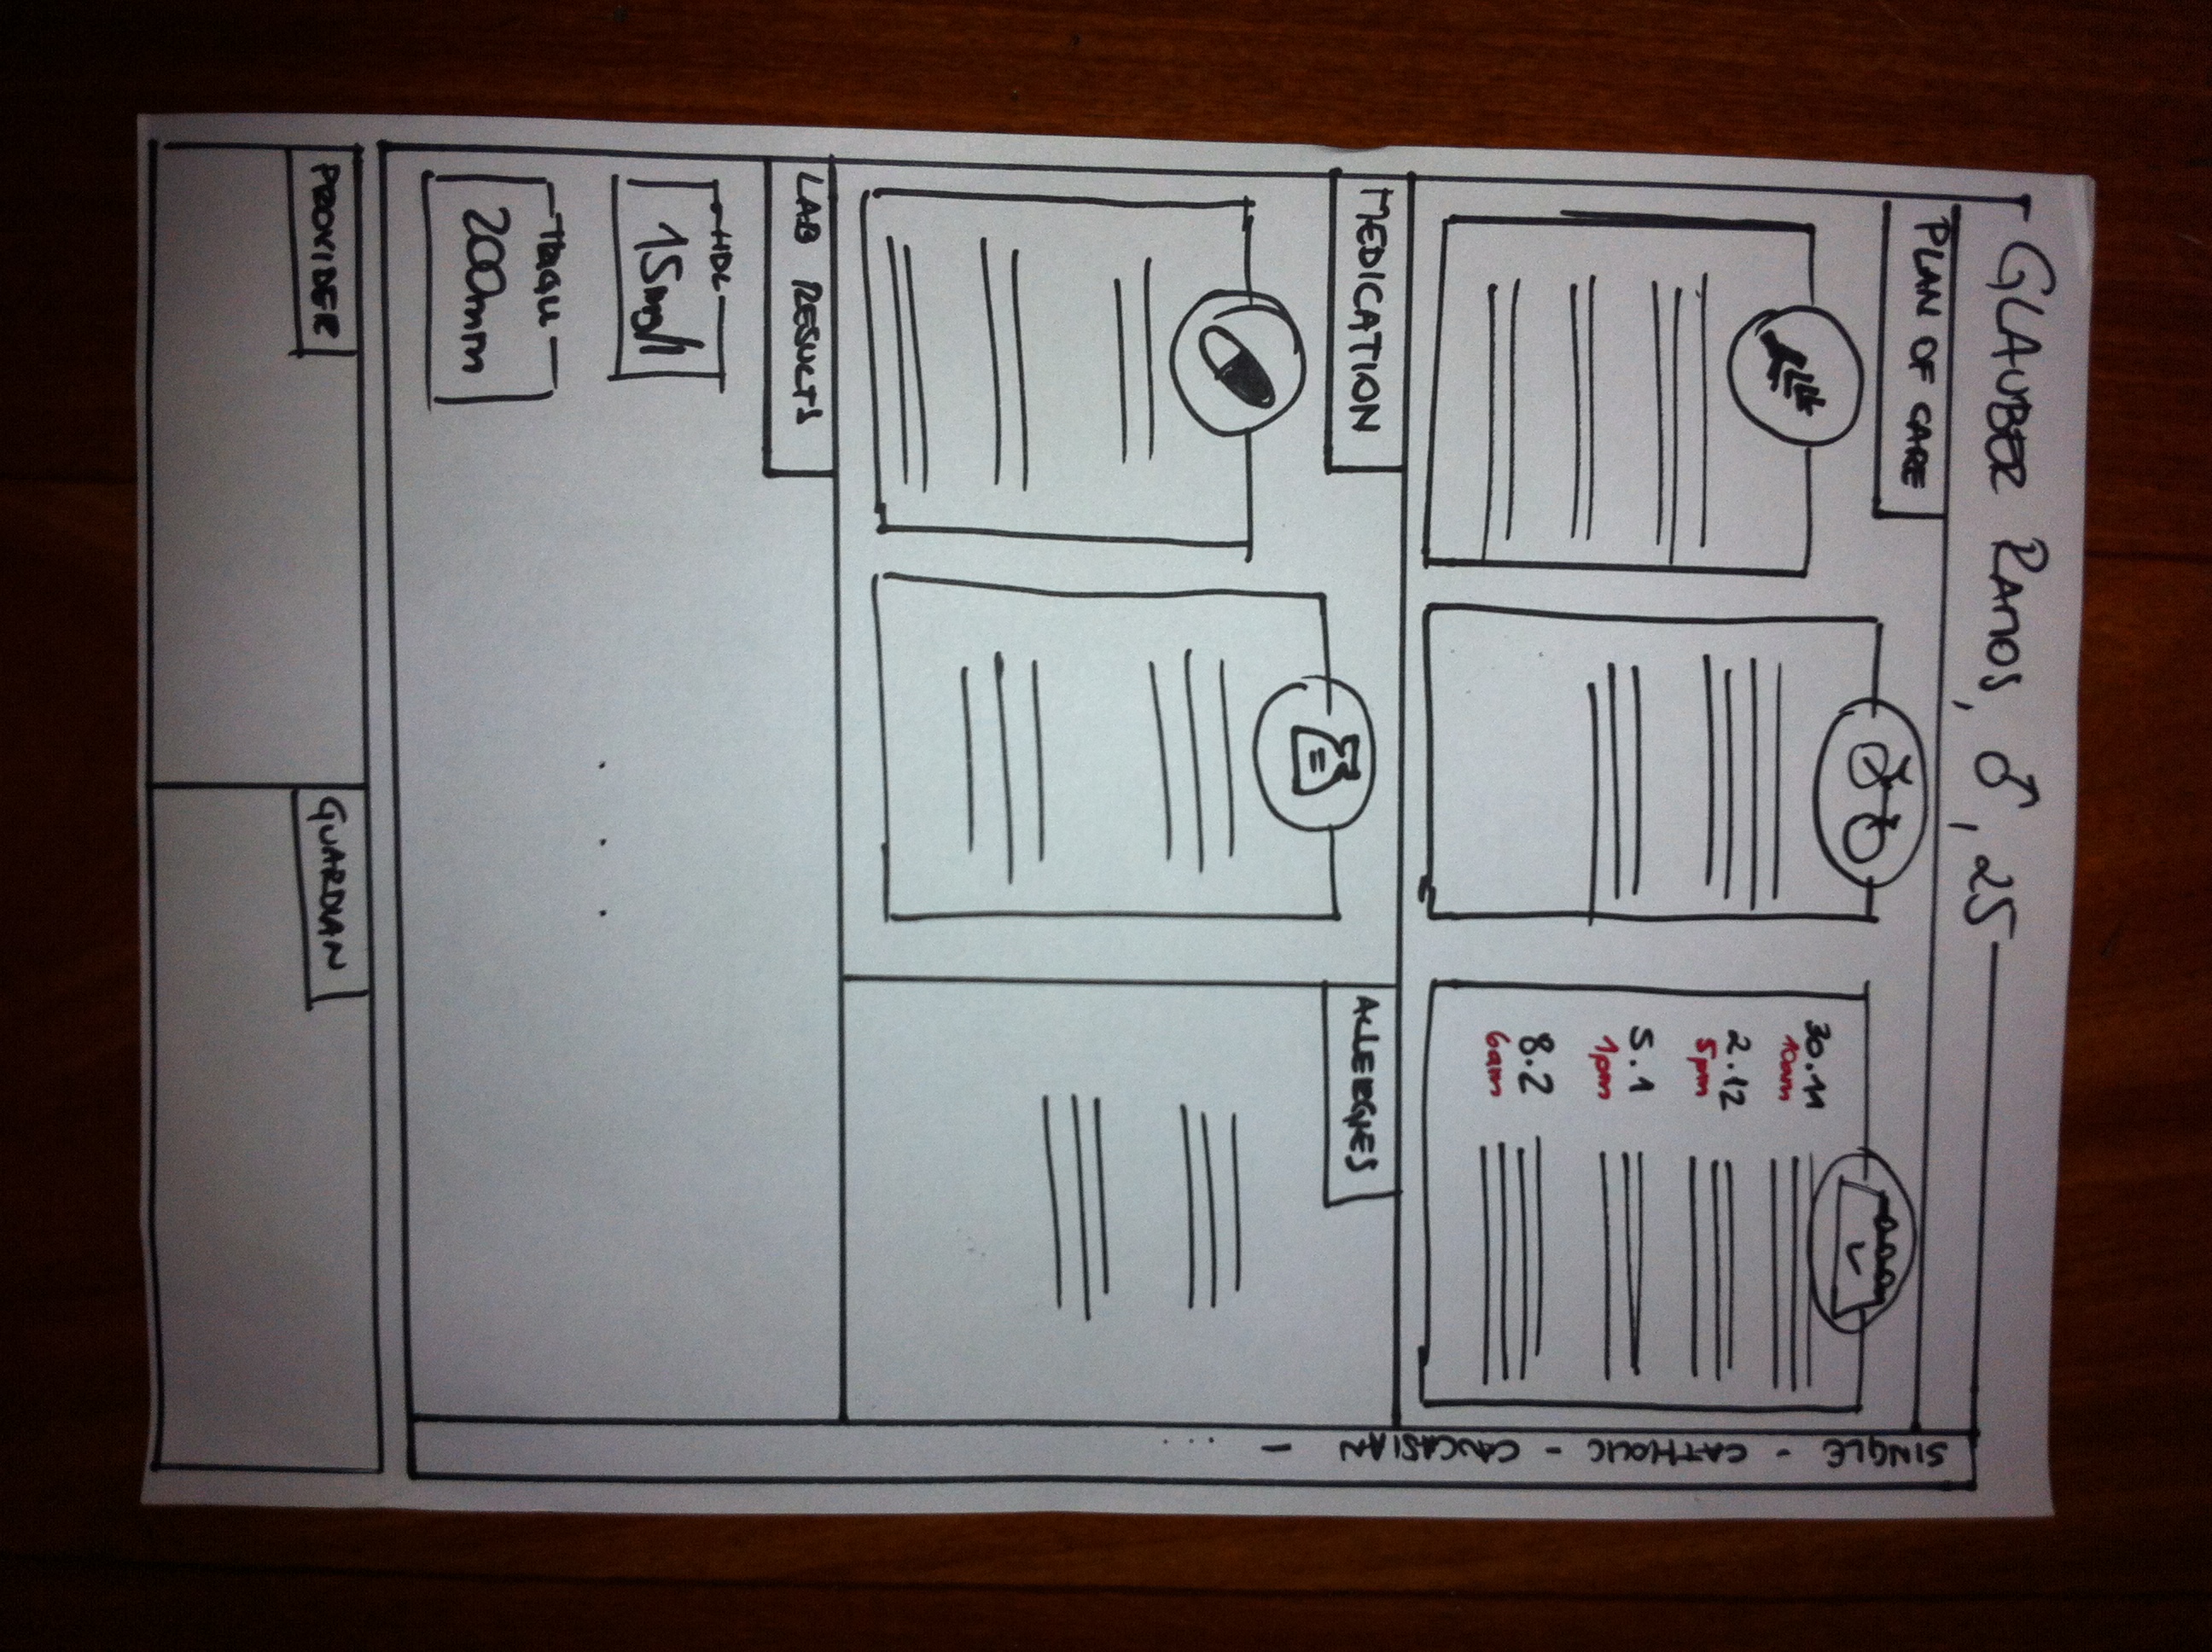 GLAUBER RAMOS, ♂, 25
SINGLE - CATHOLIC - CAUCASIAN - ...
PLAN OF CARE
30.11
10am
2.12
5pm
5.1
1pm
8.2
6am
MEDICATION
ALLERGIES
LAB RESULTS
HDL
15mg/l
200mm
PROVIDER
GUARDIAN